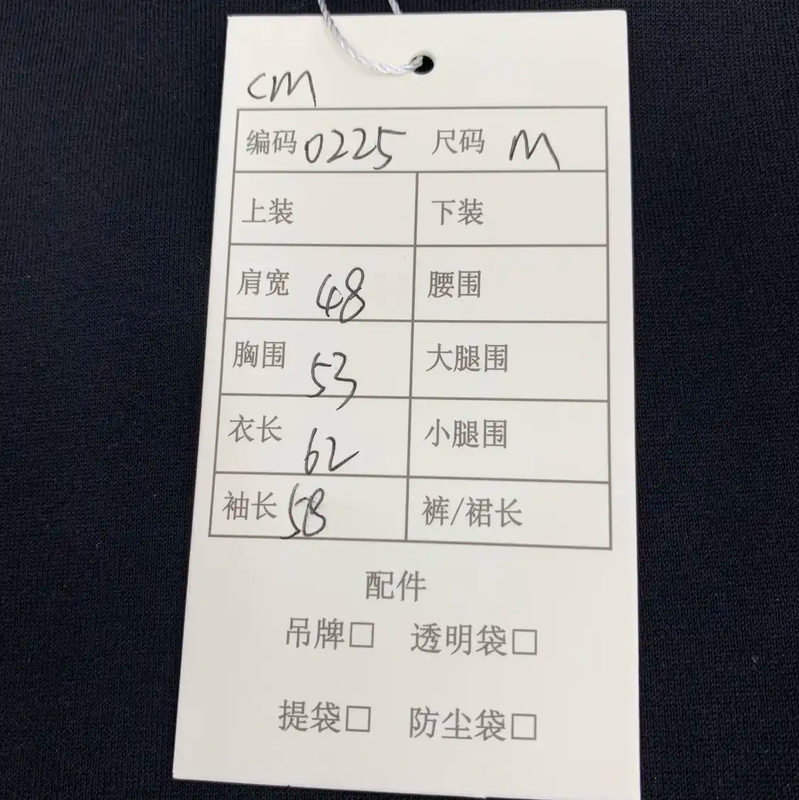 CM
编码 0225 尺码 M
上装 下装
肩宽 48 腰围
胸围 53 大腿围
衣长 62 小腿围
袖长 58 裤/裙长
配件
吊牌□ 透明袋□
提袋□ 防尘袋□